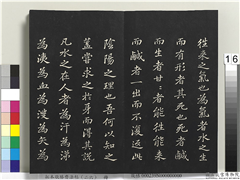 往來之氣也為氣者水之生
而有形者其死也死者鹹
而生者甘々者能往能來
而鹹者一出而不復返此
陰陽之理也吾何以知之
蓋嘗求之於身而得其說
凡水之在人者為汗為涕
為洟為血為溲為矢
16